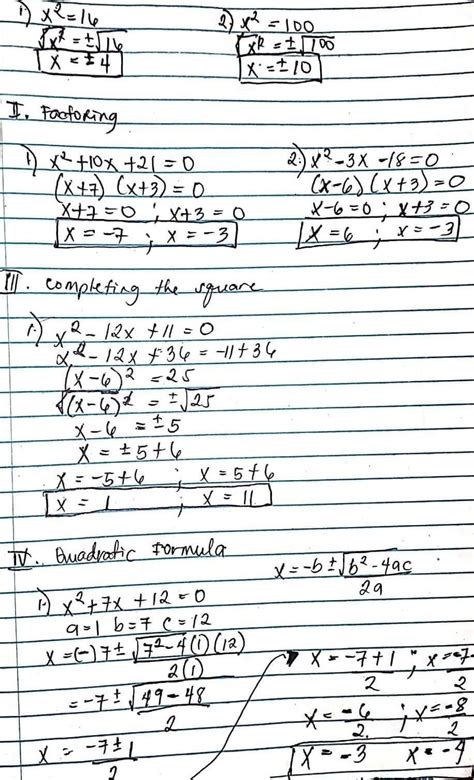 1) x² = 16
√x² = ±√16
x = ±4
2) x² = 100
√x² = ±√100
x = ±10
II. Factoring
1) x² + 10x + 21 = 0
(x+7) (x+3) = 0
x+7 = 0 ; x+3 = 0
x = -7 ; x = -3
2.) x² - 3x - 18 = 0
(x-6) (x+3) = 0
x-6 = 0 ; x+3 = 0
x = 6 ; x = -3
III. Completing the square
1.) x² - 12x + 11 = 0
x² - 12x + 36 = -11 + 36
(x-6)² = 25
√(x-6)² = ±√25
x - 6 = ±5
x = ±5 + 6
x = -5+6 ; x = 5+6
x = 1 ; x = 11
IV. Quadratic Formula
x = -b ± √b² - 4ac
2a
1.) x² + 7x + 12 = 0
a=1 b=7 c=12
x = (-) 7 ± √7² - 4(1)(12)
2(1)
= -7 ± √49 - 48
2
x = -7 ± 1
2
x = -7 + 1 ; x = -7
2 2
x = -6 ; x = -8
2 2
x = -3 x = -4